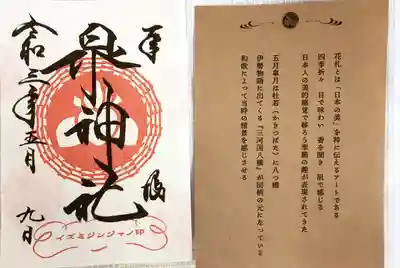 奉
拝
泉神社
令和三年五月
九日
イズミジンジャノ印
花札とは「日本の美」を粋に伝えるアートである
四季折々 目で味わい 香を聞き 肌で感じる
日本人の美的感覚で移ろう季節の趣が表現されてきた
五月皐月は杜若(かきつばた)に八つ橋
伊勢物語に出てくる『三河国八橋』が図柄の元になっている
和歌によって当時の情景を感じさせる